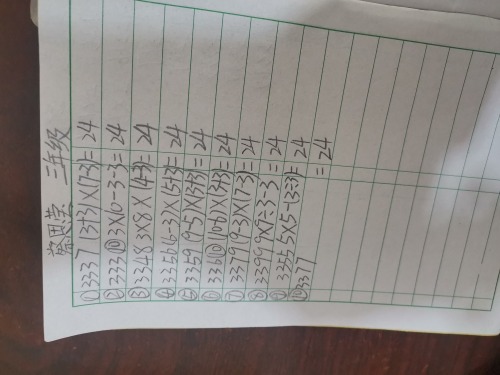 三年级
① 3337 (3+3)×(7-3)=24
② 333⑩ 3×10-3-3=24
③ 3348 3×8×(4-3)=24
④ 3356 (6-3)×(5+3)=24
⑤ 3359 (9-5)×(3+3)=24
⑥ 336⑩ (10-6)×(3+3)=24
⑦ 3379 (9-3)×(7-3)=24
⑧ 3399 9×9÷3-3=24
⑨ 3355 5×5-(3÷3)=24
⑩ 3377 =24